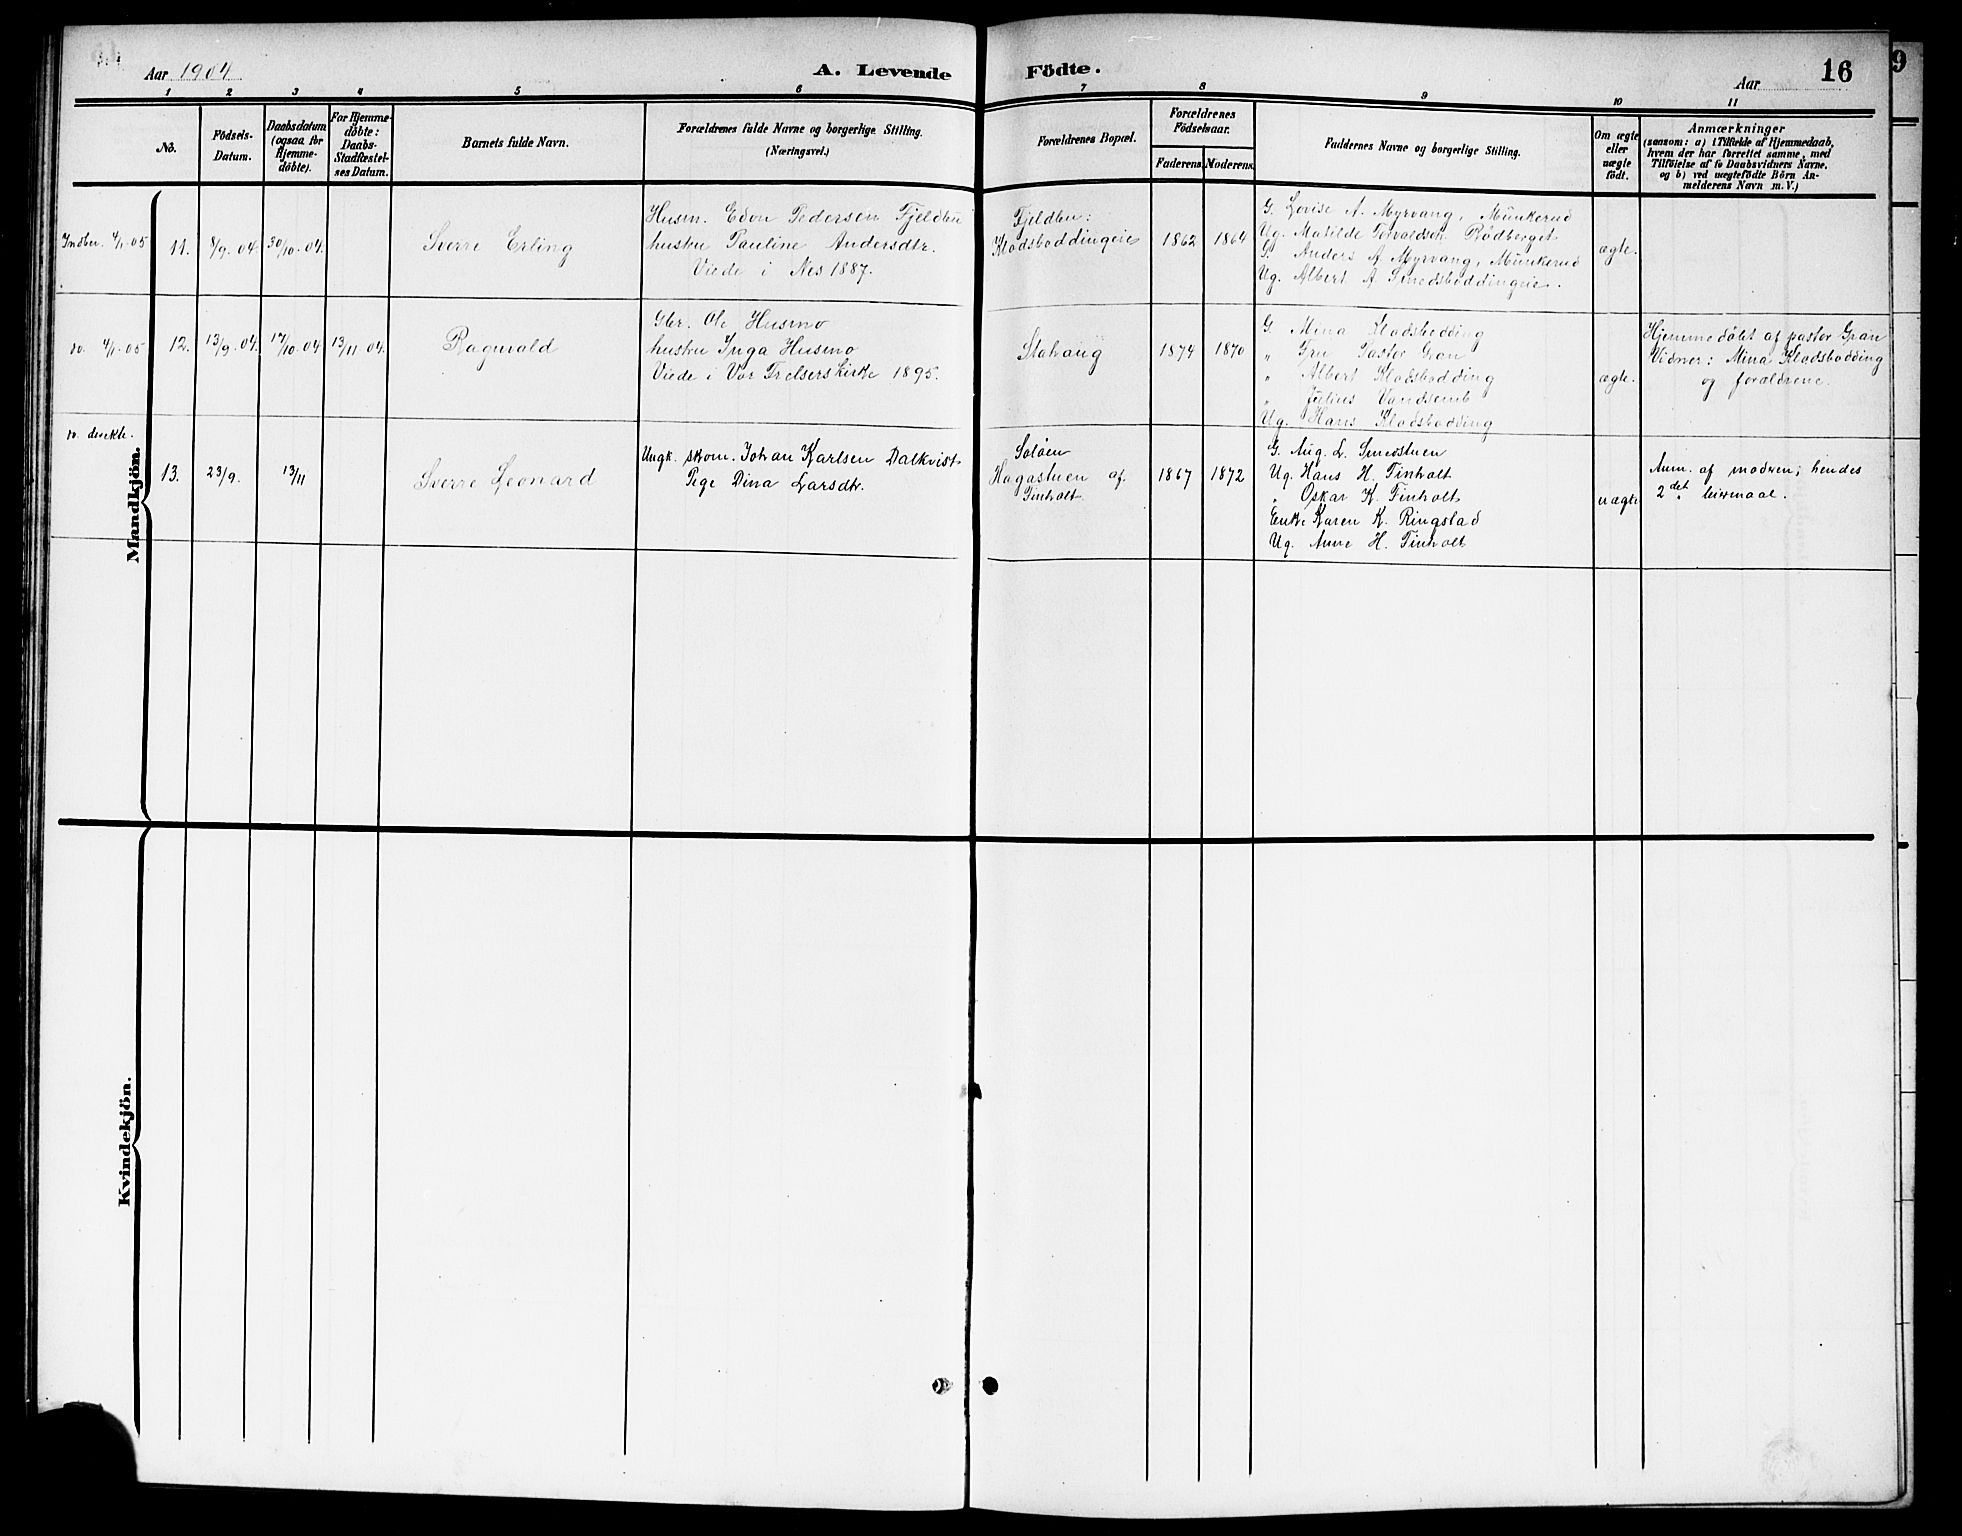 Aar 1904
A. Levende Födte.
Aar
16
1 2 3 4 5 6 7 8 9 10 11
No.
Födsels-
Datum.
Daabsdatum
(ogsaa for
Hjemme-
döbte).
For Hjemme-
döbte:
Daabs-
Stadfæstel-
ses Datum.
Barnets fulde Navn.
Forældrenes fulde Navne og borgerlige Stilling.
(Næringsvei.)
Forældrenes Bopæl.
Forældrenes
Födselsaar.
Faderens. Moderens.
Faddernes Navne og borgerlige Stilling.
Om ægte
eller
uægte
födt.
Anmærkninger
(saasom: a) i Tilfælde af Hjemmedaab,
hvem der har forrettet samme, med
Tilföielse af to Daabsvidners Navne,
og b) ved uægtefödte Börn An-
melderens Navn m. V.)
Mandkjön.
Indber. 4/1-05
11.
8/9. 04.
30/10. 04.
Sverre Erling
Husm. Edon Pedersen Fjeldbu
hustru Pauline Andersdtr.
Viede i Nes 1887.
Fjeldbu:
Klodsboddingeie
1862
1864
G. Lovise A. Myrvang, Munkerud
Ug. Matilde Torvaldsen Rödberget
G. Anders A. Myrvang, Munkerud
Ug. Albert A. Smedsboddingeie.
ægte.
4/1-05
12.
13/9. 04.
17/10. 04
13/11 04.
Ragnvald
Gbr. Ole Husmo
hustru Inga Husmo
Viede i Vor Frelsers Kirke 1895.
Stahaug
1874
1870
G. Mina Klodsbodding
„ Fru Pastor Gran
„ Albert Klodsbodding
„ Julius Vandsemb
Ug. Hans Klodsbodding
ægte.
Hjemmedöbt af pastor Gran
Vidner: Mina Klodsbodding
og forældrene.
13.
23/9.
13/11
Sverre Leonard
Ungk. skom. Johan Karlsen Dalkvist
Pige Dina Larsdtr.
Soløen
Hagastuen af
Finholt
1867
1872
G. Aug. L. Smedstuen
Ug. Hans H. Finholt
„ Oskar K. Finholt
Enke Karen K. Ringstad
Ug. Anne H. Finholt
uægte
Anm. af modren; hendes
2det leiermaal.
Kvindekjön.
9